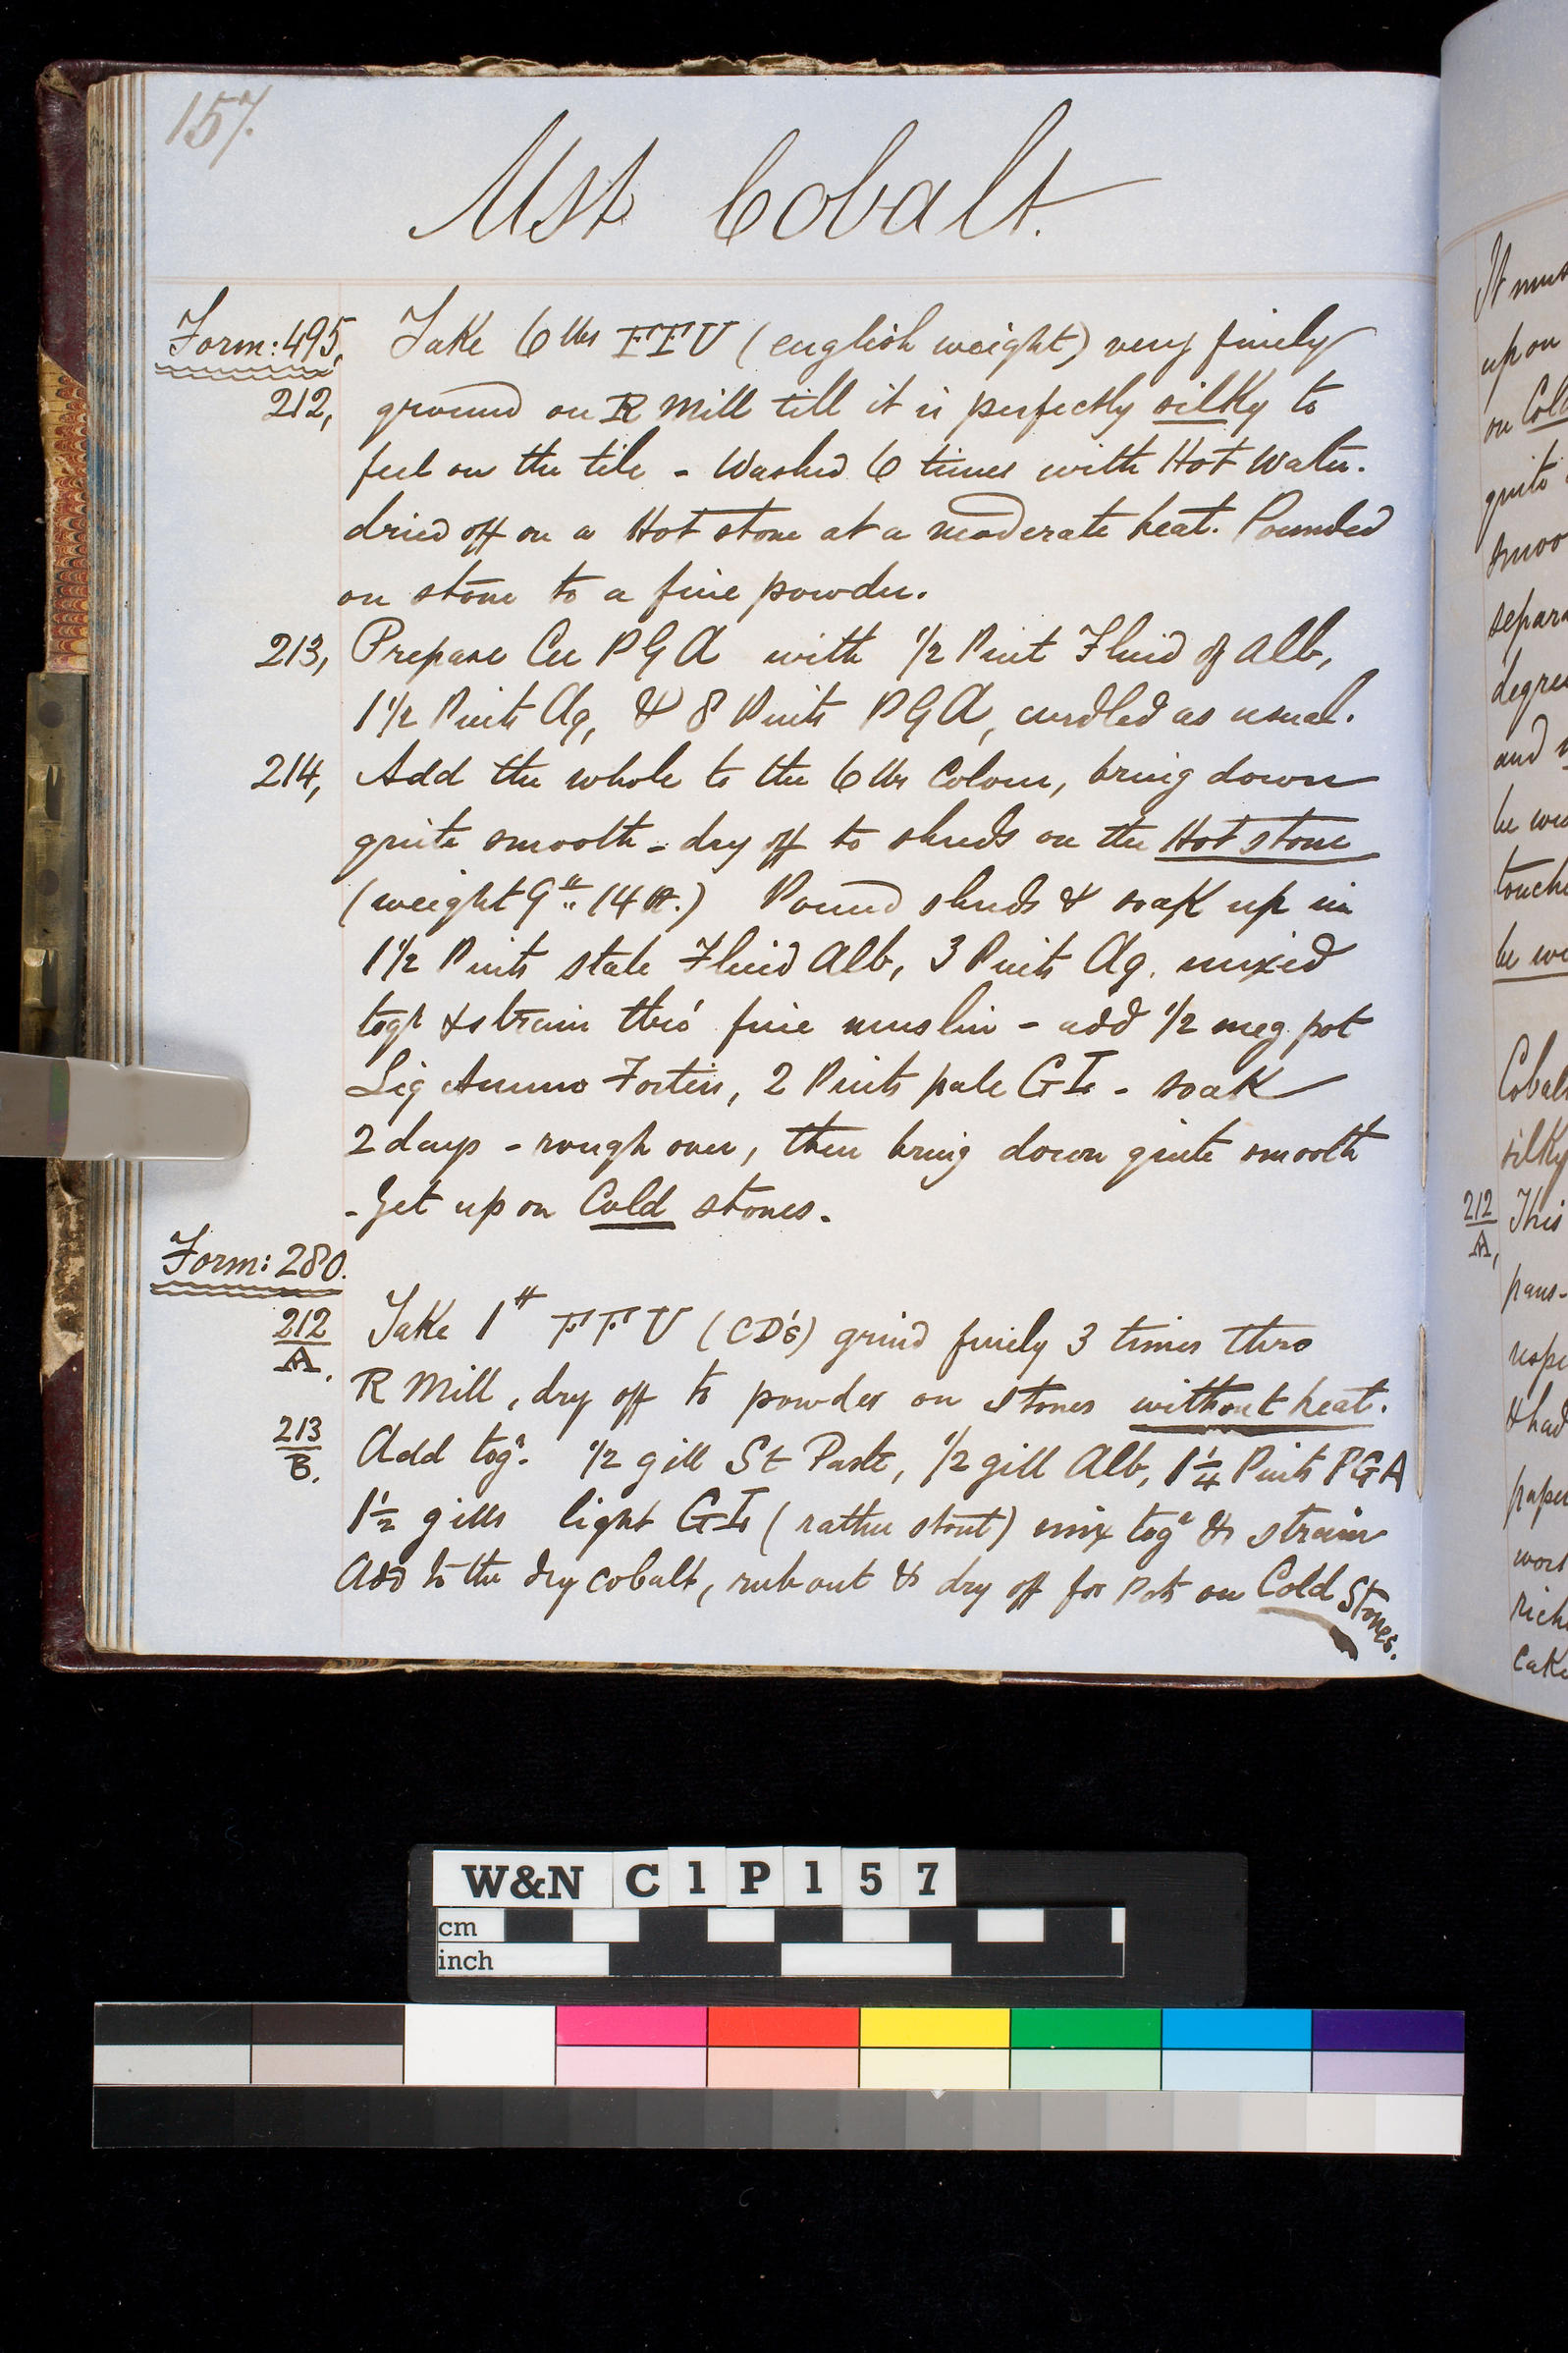 157.
Mst Cobalt.
Form: 495, Take 6 lbs FFU (english weight) very finely
212, ground on R Mill till it is perfectly silky to
feel on the tile - Washed 6 times with Hot Water.
dried off on a Hot stone at a moderate heat. Pounded
on stone to a fine powder.
213, Prepare Cu PGA with 1/2 Pint Fluid of Alb,
1 1/2 Pints Aq, & 8 Pints PGA, curdled as usual.
214, Add the whole to the 6 lbs Colour, bring down
quite smooth - dry off to shreds on the Hot stone
(weight 9 lb 14 oz.) Pound shreds & soak up in
1 1/2 Pints stale Fluid Alb, 3 Pints Aq. mixed
togr & strain thro' fine muslin - add 1/2 meg pot
Liq Ammo Fortis, 2 Pints pale GI - soak
2 days - rough over, then bring down quite smooth
- Get up on Cold stones.
Form: 280.
212/A. Take 1 lb FFU (CD's) grind finely 3 times thro
R Mill, dry off to powder on stones without heat.
213/B. Add togr. 1/2 gill St Paste, 1/2 gill Alb, 1 1/4 Pints PGA
1 1/2 gills light GI (rather stout) mix togr & strain
Add to the dry cobalt, rub out & dry off for Pots on Cold Stones.
It mus
upon
on Col
quite
smoo
separa
degre
and
be
touch
Cobal
silky
212/A, This
pans-
respe
& had
paper
wor
rich
cake
W&N C1P157
cm
inch